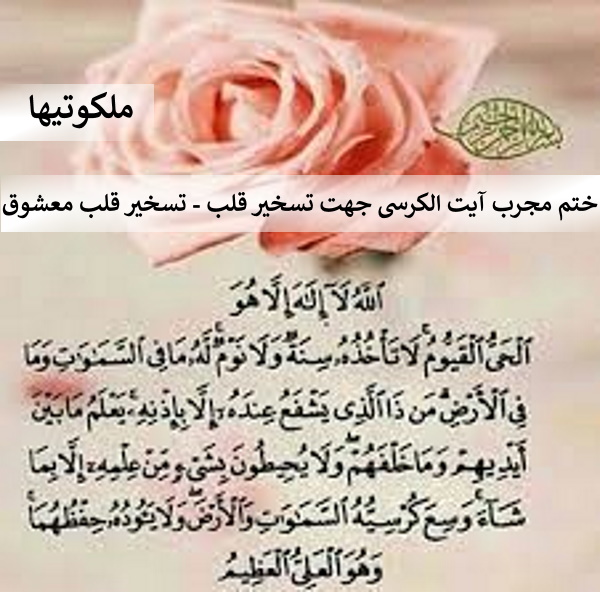 ملکوتیها
ختم مجرب آیت الکرسی جهت تسخیر قلب - تسخیر قلب معشوق
ٱللَّهُ لَآ إِلَٰهَ إِلَّا هُوَ
ٱلْحَىُّ ٱلْقَيُّومُ ۚ لَا تَأْخُذُهُۥ سِنَةٌ وَلَا نَوْمٌ ۚ لَّهُۥ مَا فِى ٱلسَّمَٰوَٰتِ وَمَا
فِى ٱلْأَرْضِ ۗ مَن ذَا ٱلَّذِى يَشْفَعُ عِندَهُۥٓ إِلَّا بِإِذْنِهِۦ ۚ يَعْلَمُ مَا بَيْنَ
أَيْدِيهِمْ وَمَا خَلْفَهُمْ ۖ وَلَا يُحِيطُونَ بِشَىْءٍ مِّنْ عِلْمِهِۦٓ إِلَّا بِمَا
شَآءَ ۚ وَسِعَ كُرْسِيُّهُ ٱلسَّمَٰوَٰتِ وَٱلْأَرْضَ ۖ وَلَا يَـُٔودُهُۥ حِفْظُهُمَا ۚ
وَهُوَ ٱلْعَلِىُّ ٱلْعَظِيمُ